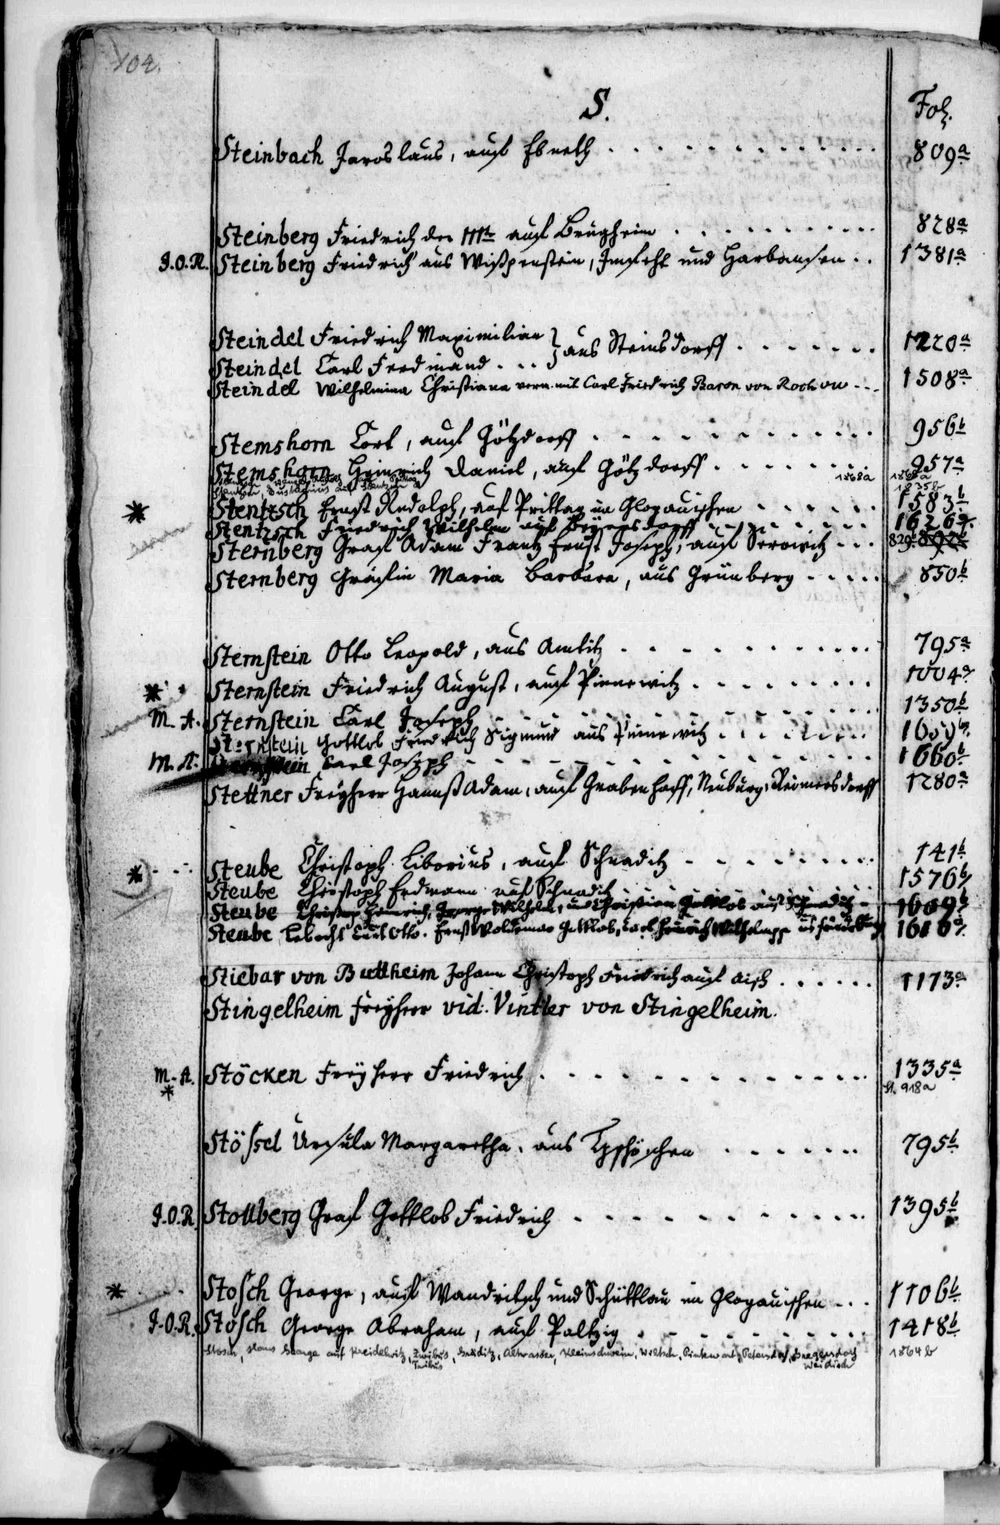 104.
S. Fol.
Steinbach Jaroslaus, auf Ebneth 809a
Steinberg Friedrich der IIIte auf 828a
J.O.R. Steinberg Friedrich aus Wißpenstein, und Harbarnsen 1381a
Steindel Friedrich Maximilian } aus Steinsdorff 1220a
Steindel Carl Ferdinand
Steindel Wilhelmina Christiana verm. mit Carl Friedrich Baron von Rochow 1508a
Stemshorn Cort, auf Götzdorff 956b
Stemshorn Heinrich Daniel, auf Götzdorff 957a
1868a
Stentzsch Ernst Rudolph, auf Prittag im Glogauischen 1583b
Stentzsch Friedrich Wilhelm auf 1626a
Sternberg Graf Adam Frantz Ernst Joseph, auf Serowitz 829
Sternberg Gräfin Maria Barbara, aus Grünberg 830b
Sternstein Otto Leopold, aus Amtitz 795a
Sternstein Friedrich August, auf 1004a
M. A. Sternstein Carl Joseph 1350b
Sternstein Gottlob Friedrich Sigmund aus
M. A. Sternstein Carl Joseph 1660b
Stettner Freyherr Hannß Adam, auf Grabenhoff, Neuburg, Reimersdorff 1280a
Steube Christoph Liborius, auf Schnaditz 141b
Steube Christoph Erdmann auf Schnaditz 1576b
Steube Christoph Heinrich, George Wilhelm, und Christian Gottlob auf Schnaditz 1609b
Steube Ernst Woldemar Gottlob, Carl Heinrich 1616a
Stiebar von Buttheim Johann Christoph Friedrich auf Aisch 1173a
Stingelheim Freyherr vid. Vintler von Stingelheim.
M. A. Stöcken Freyherr Friedrich 1335a
918a
Stössel Ursula Margaretha, aus 795b
J.O.R. Stollberg Graf Gottlob Friedrich 1395b
Stosch George, auf Wandritsch und Schüttlau im Glogauischen 1106b
J.O.R. Stosch George Abraham, auf Paltzig 1418b
Stosch, Hans George auf 1864b